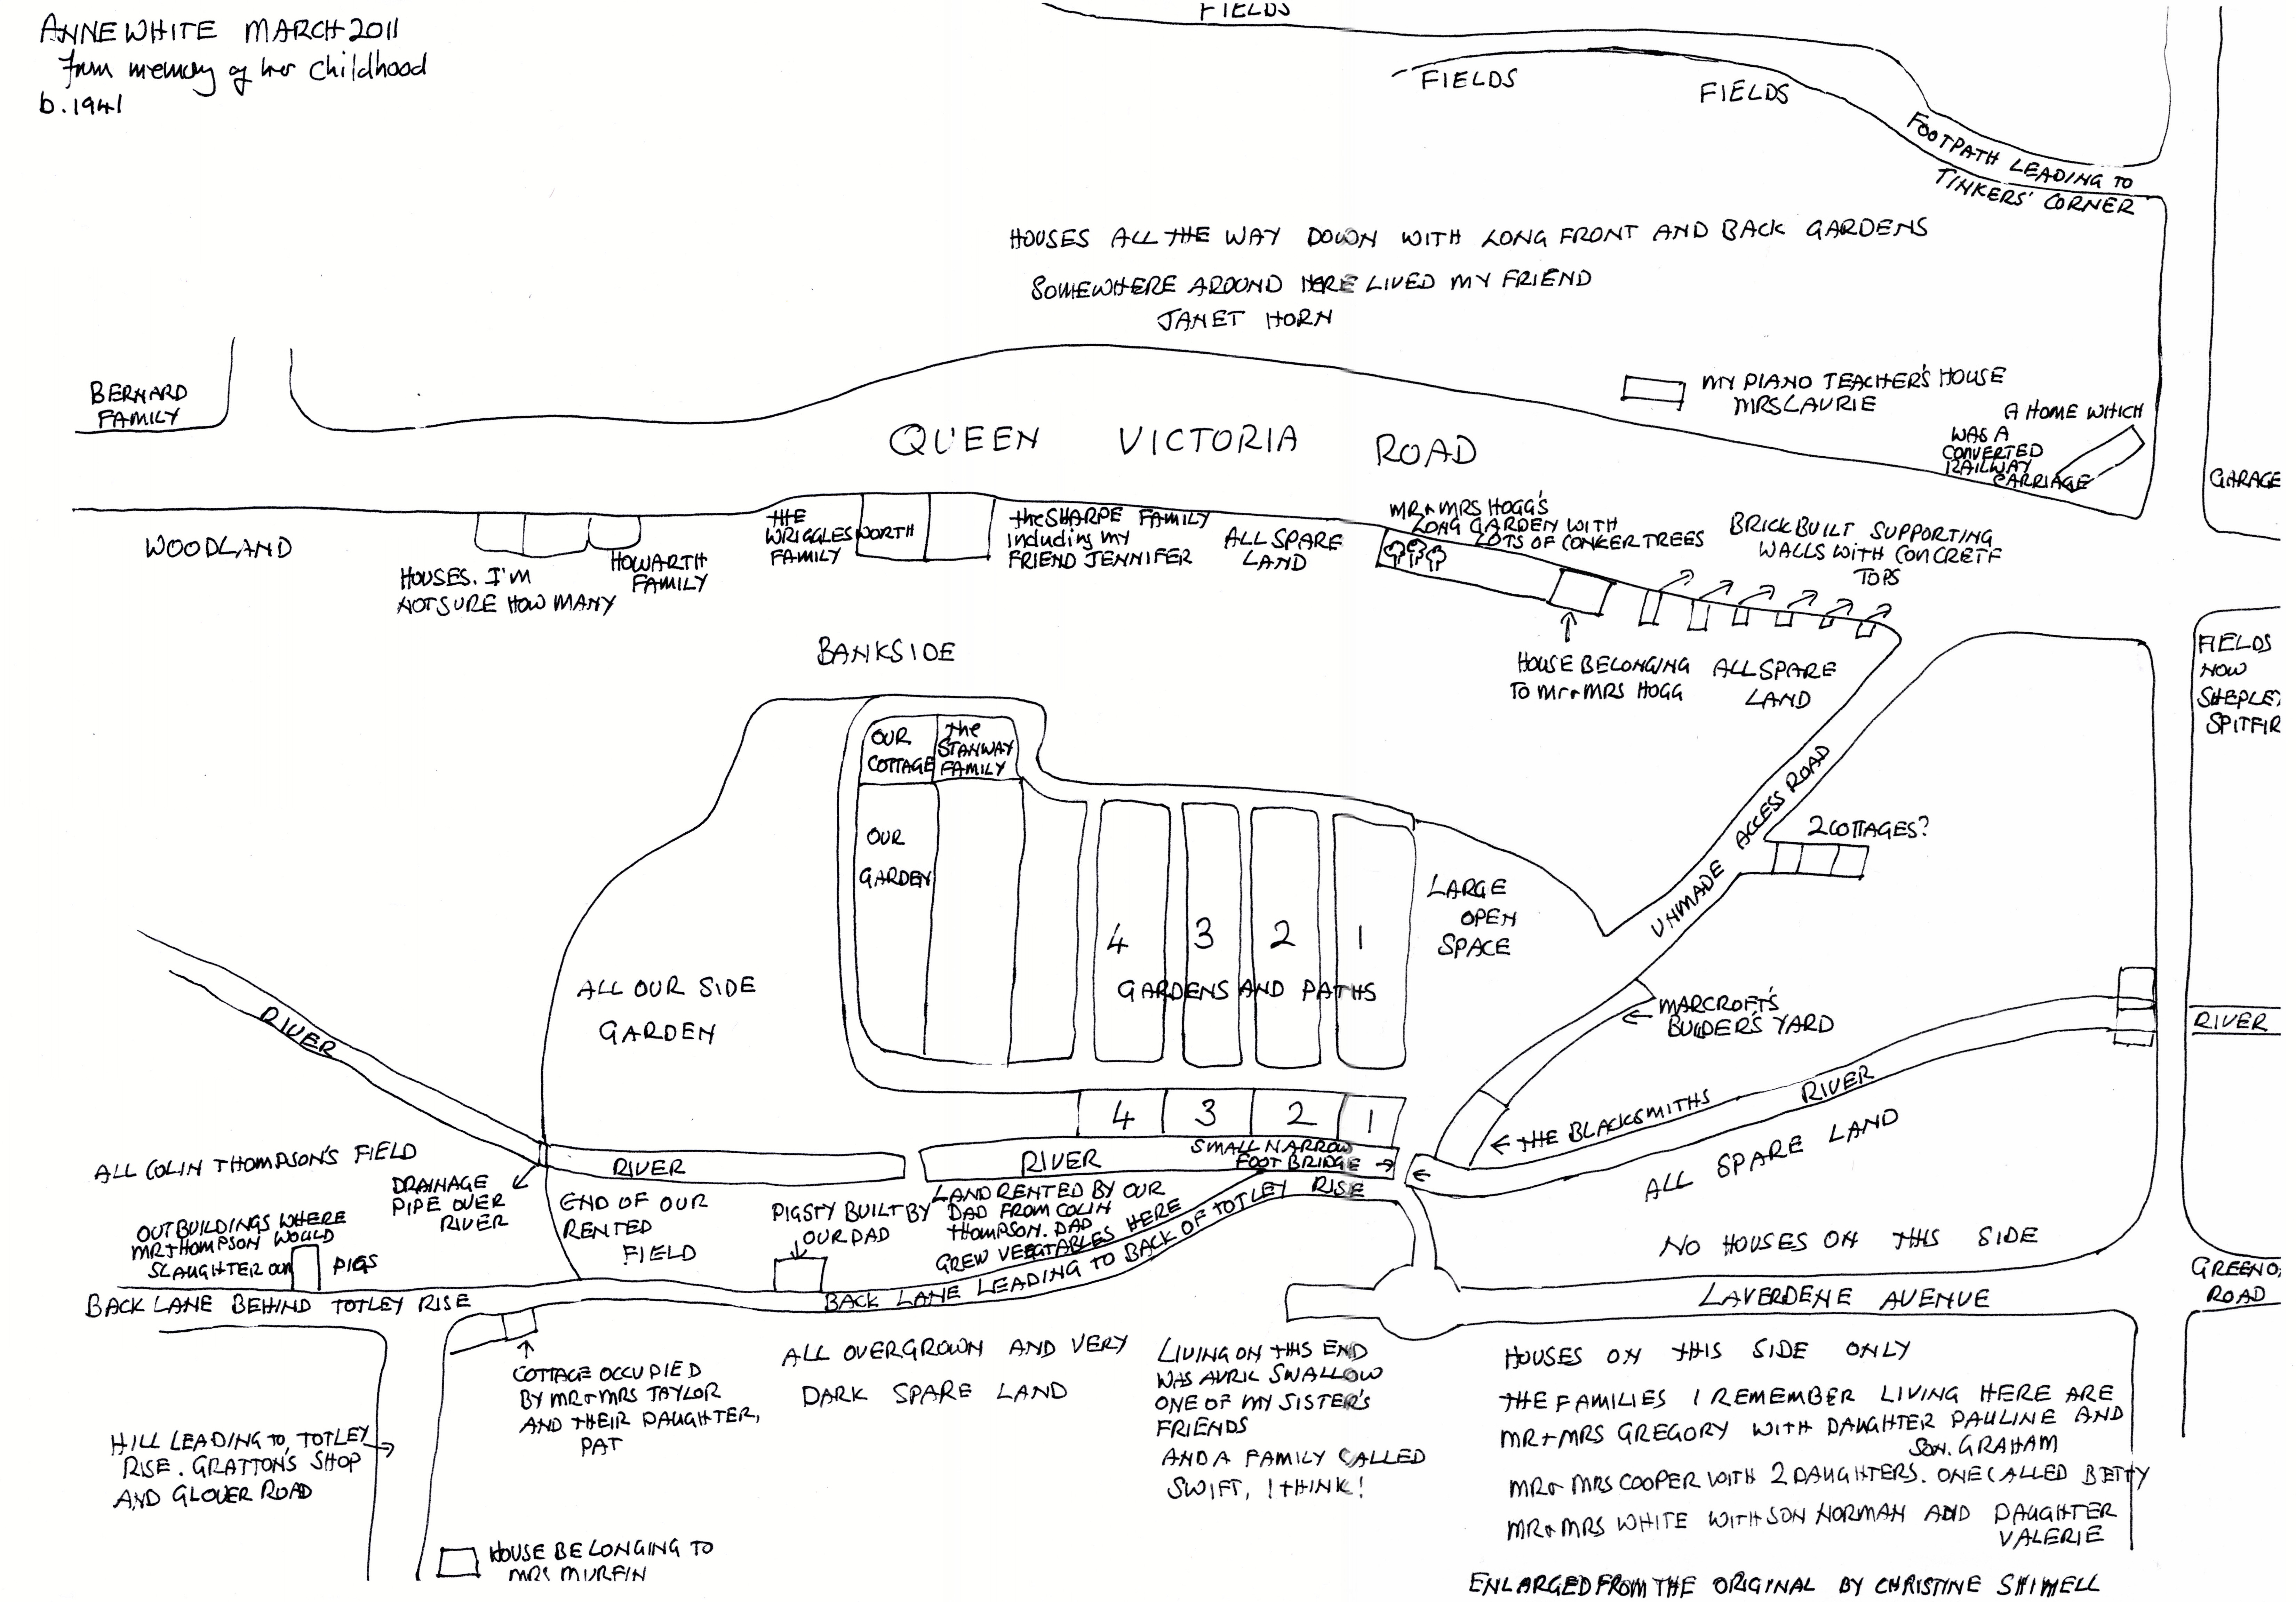 ANNE WHITE MARCH 2011
From memory of her childhood
b. 1941
FIELDS
FIELDS
FIELDS
FOOTPATH LEADING TO
TINKERS' CORNER
HOUSES ALL THE WAY DOWN WITH LONG FRONT AND BACK GARDENS
SOMEWHERE AROUND HERE LIVED MY FRIEND
JANET HORN
BERNARD
FAMILY
MY PIANO TEACHER'S HOUSE
MRS LAURIE
A HOME WHICH
WAS A
CONVERTED
RAILWAY
CARRIAGE
GARAGE
QUEEN VICTORIA ROAD
WOODLAND
HOUSES. I'M
NOT SURE HOW MANY
HOWARTH
FAMILY
THE
WRIGGLESWORTH
FAMILY
the SHARPE FAMILY
including my
FRIEND JENNIFER
ALL SPARE
LAND
MR + MRS HOGG'S
LONG GARDEN WITH
LOTS OF CONKER TREES
BRICK BUILT SUPPORTING
WALLS WITH CONCRETE
TOPS
HOUSE BELONGING
TO Mr + MRS HOGG
ALL SPARE
LAND
FIELDS
NOW
SHEPLEY
SPITFIR
BANKSIDE
OUR
COTTAGE
the
STANWAY
FAMILY
OUR
GARDEN
4 3 2 1
GARDENS AND PATHS
LARGE
OPEN
SPACE
UNMADE ACCESS ROAD
2 COTTAGES?
MARCROFT'S
BUILDER'S YARD
RIVER
ALL OUR SIDE
GARDEN
RIVER
4 3 2 1
THE BLACKSMITHS
RIVER
ALL SPARE LAND
ALL COLIN THOMPSON'S FIELD
DRAINAGE
PIPE OVER
RIVER
RIVER
RIVER
SMALL NARROW
FOOT BRIDGE
END OF OUR
RENTED
FIELD
PIGSTY BUILT BY
OUR DAD
LAND RENTED BY OUR
DAD FROM COLIN
THOMPSON. DAD
GREW VEGETABLES HERE
OUTBUILDINGS WHERE
MR THOMPSON WOULD
SLAUGHTER OUR
PIGS
BACK LANE BEHIND TOTLEY RISE
BACK LANE LEADING TO BACK OF TOTLEY RISE
NO HOUSES ON THIS SIDE
LAVERDENE AVENUE
GREENO
ROAD
COTTAGE OCCUPIED
BY MR + MRS TAYLOR
AND THEIR DAUGHTER,
PAT
ALL OVERGROWN AND VERY
DARK SPARE LAND
LIVING ON THIS END
WAS AVRIL SWALLOW
ONE OF MY SISTER'S
FRIENDS
AND A FAMILY CALLED
SWIFT, I THINK!
HOUSES ON THIS SIDE ONLY
THE FAMILIES I REMEMBER LIVING HERE ARE
MR + MRS GREGORY WITH DAUGHTER PAULINE AND
SON. GRAHAM
MR + MRS COOPER WITH 2 DAUGHTERS. ONE CALLED BETTY
MR + MRS WHITE WITH SON NORMAN AND DAUGHTER
VALERIE
HILL LEADING TO TOTLEY
RISE. GRATTON'S SHOP
AND GLOVER ROAD
HOUSE BELONGING TO
MRS MURFIN
ENLARGED FROM THE ORIGINAL BY CHRISTINE SHIMELL